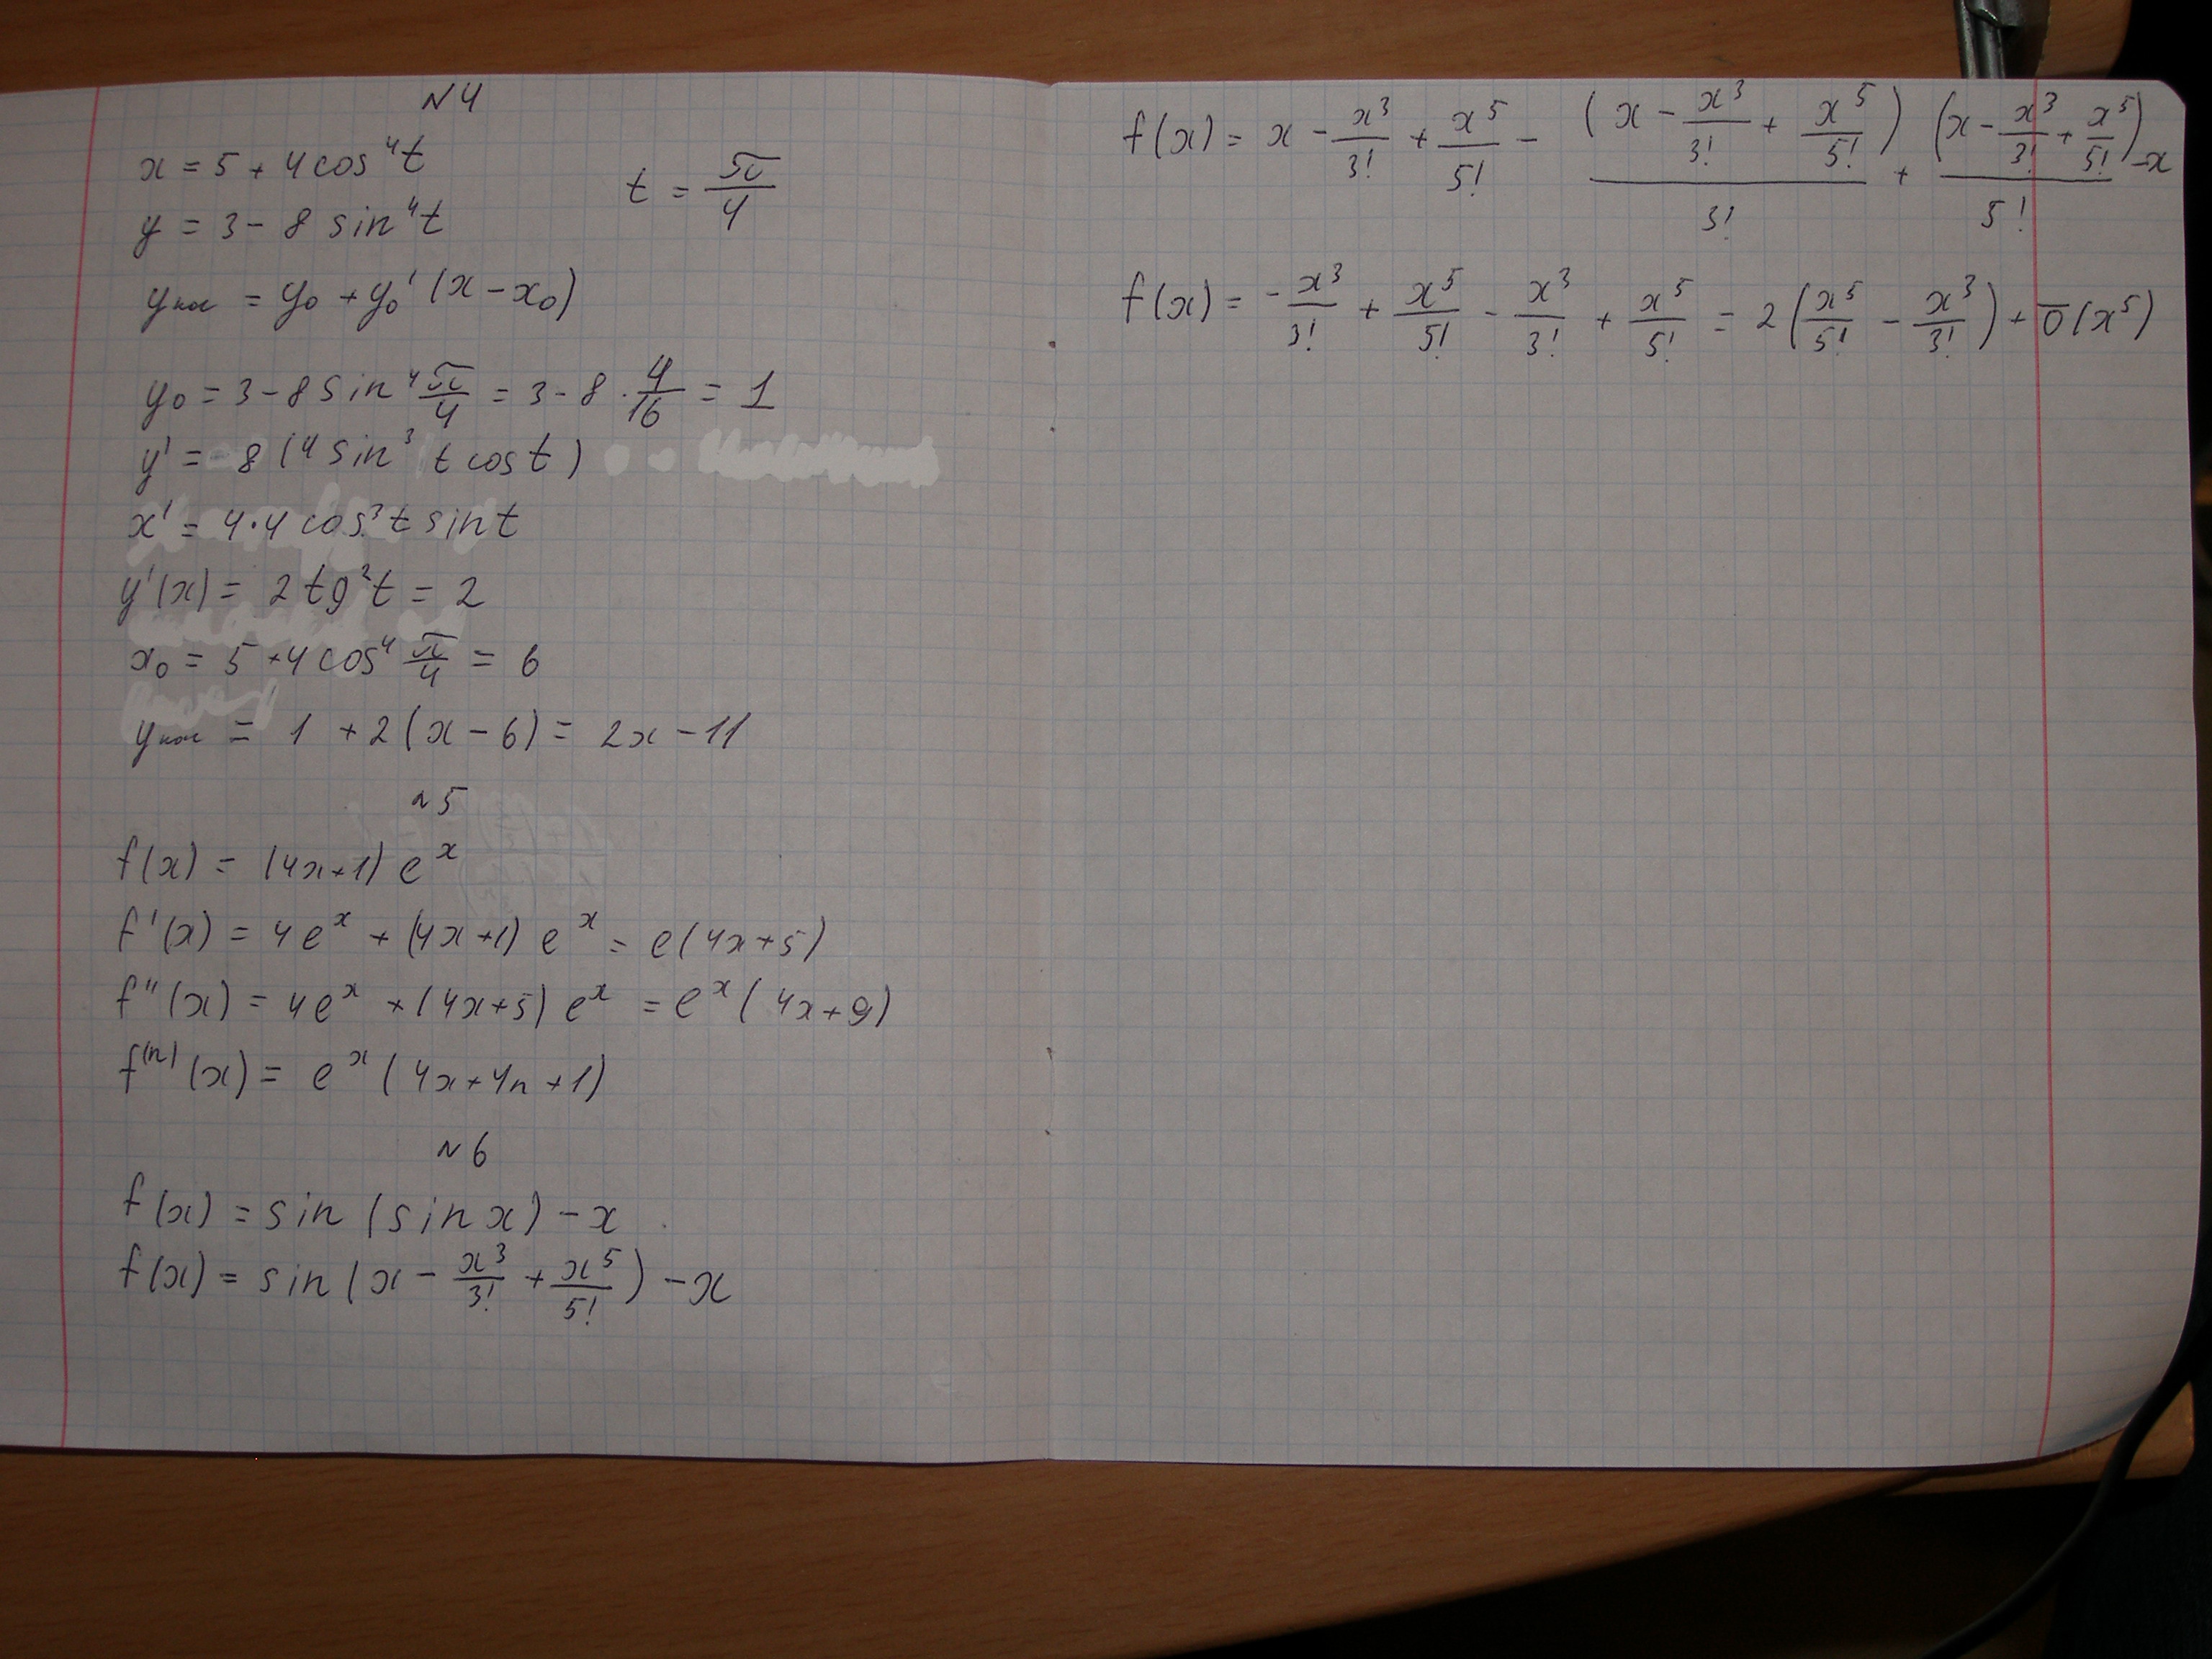 N4
x = 5 + 4cos⁴t
t = π/4
y = 3 - 8 sin⁴t
yкас = y₀ + y₀'(x - x₀)
y₀ = 3 - 8 sin⁴ π/4 = 3 - 8 · 4/16 = 1
y' = -8 (4 sin³ t cos t)
x' = 4·4 cos³t sin t
y'(x) = 2 tg²t = 2
x₀ = 5 + 4 cos⁴ π/4 = 6
yкас = 1 + 2(x - 6) = 2x - 11
N5
f(x) = (4x+1) eˣ
f'(x) = 4eˣ + (4x+1) eˣ = e(4x+5)
f''(x) = 4eˣ + (4x+5) eˣ = eˣ(4x+9)
f⁽ⁿ⁾(x) = eˣ(4x+4n+1)
N6
f(x) = sin(sin x) - x
f(x) = sin(x - x³/3! + x⁵/5!) - x
f(x) = x - x³/3! + x⁵/5! - (x - x³/3! + x⁵/5!)/3! + (x - x³/3! + x⁵/5!)/5! - x
f(x) = -x³/3! + x⁵/5! - x³/3! + x⁵/5! = 2(x⁵/5! - x³/3!) + o̅(x⁵)